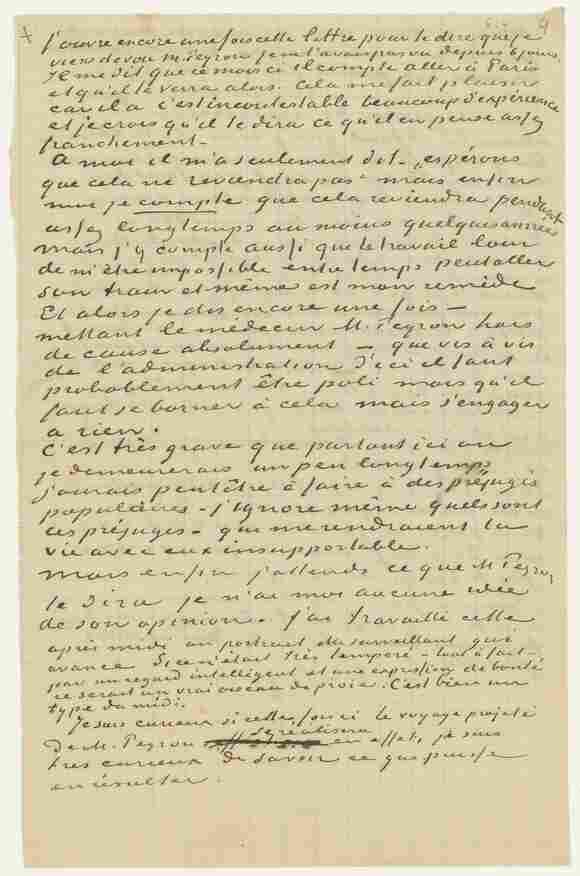 j'ouvre encore une fois cette lettre pour te dire que je
viens de voir M. Peyron je ne l'avais pas vu depuis 6 jours.
Il me dit que ce mois ci il compte aller à Paris
et qu'il te verra alors. Cela me fait plaisir
car il a c'est incontestable beaucoup d'expérience
et je crois qu'il te dira ce qu'il en pense assez
franchement.
A moi il m'a seulement dit - „espérons
que cela ne reviendra pas” mais enfin
moi je compte que cela reviendra pendant
assez longtemps au moins quelques années
mais j'y compte aussi que le travail loin
de m'être impossible entretemps peut aller
son train et même est mon remède
Et alors je dis encore une fois -
mettant le médecin M. Peyron hors
de cause absolument - que vis à vis
de l'administration d'ici il faut
probablement être poli mais qu'il
faut se borner à cela mais s'engager
a rien.
C'est très grave que partout ici où
je demeurerais un peu longtemps
j'aurais peutêtre à faire à des préjugés
populaires - j'ignore même quels sont
ces préjugés - qui me rendraient la
vie avec eux insupportable.
Mais enfin j'attends ce que M Peyron
te dira je n'ai moi aucune idée
de son opinion. J'ai travaillé cette
après midi au portrait du surveillant qui
avance. Si ce n'était très tempéré - tout à fait -
par un regard intelligent et une expression de bonté
ce serait un vrai oiseau de proie. C'est bien un
type du midi.
Je suis curieux si cette fois ci le voyage projeté
de M. Peyron se realisera en effet, je suis
très curieux de savoir ce que puisse
en résulter.